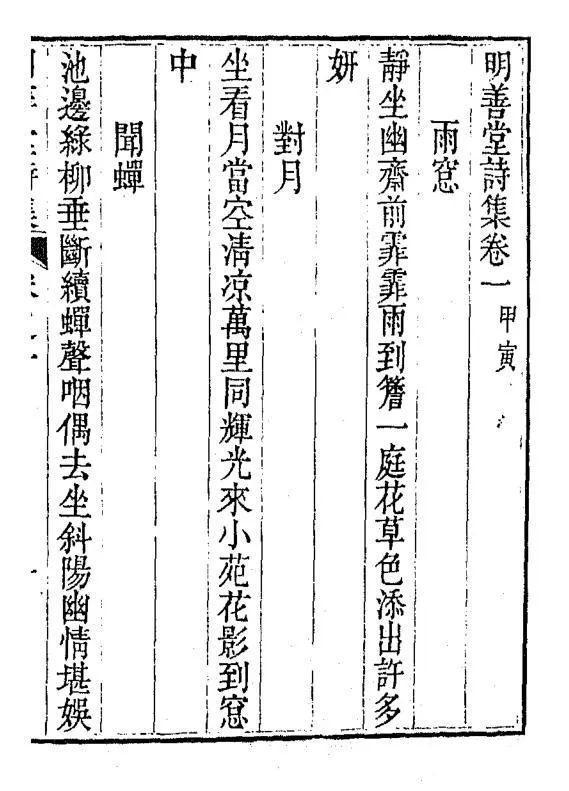 明善堂詩集卷一 甲寅
雨窓
靜坐幽齋前霏霏雨到簷一庭花草色添出許多
妍
對月
坐看月當空淸凉萬里同輝光來小苑花影到窓
中
聞蟬
池邊綠柳垂斷續蟬聲咽偶去坐斜陽幽情堪娛